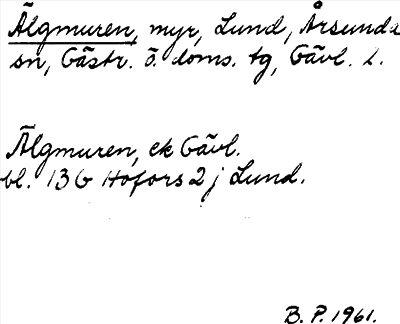 Älgmuren, myr, Lund, Årsunda
sn, Gästr. ö. doms. tg, Gävl. l.
Älgmuren, ek Gävl.
bl. 13 G Hofors 2 j Lund.
B. P. 1961.